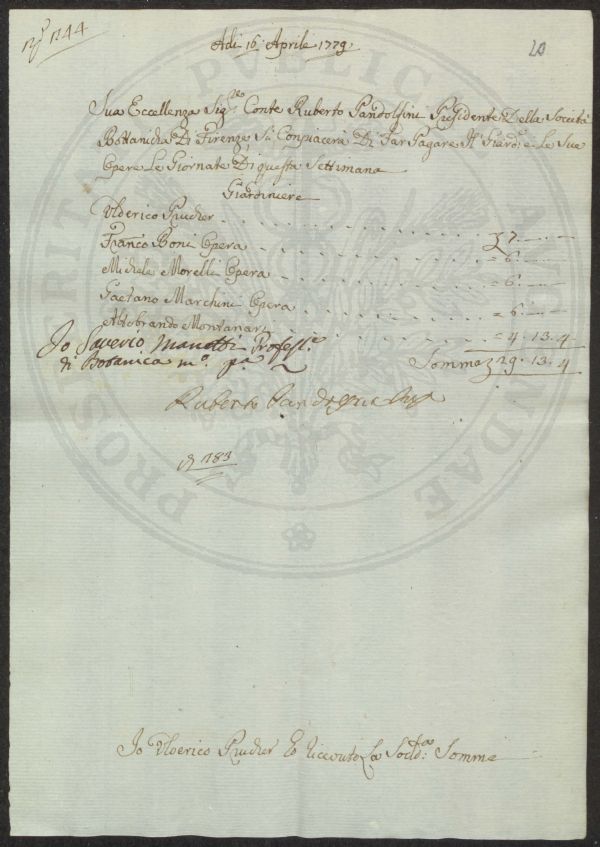 N.° 1244
20
Adi 16 Aprile 1779
Sua Eccellenza Sig.re Conte Ruberto Pandolfini Presidente Della Società
Bottanicha Di Firenze Si Conpiacerà Di Far Pagare Il Giard.e e Le Sue
Opere Le Giornate Di questa Settimana
Giardiniere
Ulderico Prucher . . . . . . . . £ 7. —. —
Franco Boni Opera . . . . . . . = 6. —. —
Michele Morelli Opera . . . . . . . = 6. —. —
Gaetano Marchini Opera . . . . . . . = 6. —. —
Aldobrando Montanari = 4. 13. 4
Io Saverio Manetti Profess.e Somma £ 29. 13. 4
di Botanica m.o p.a
Ruberto Pandolfini
183
Io Ulderico Prucher O riceuto La Sod.a Somma
PUBLICAE
PROSPERITATI